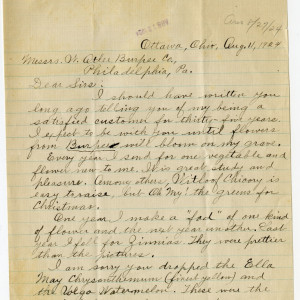 Ans 8/27/24
Ottawa, Ohio, Aug. 11, 1924
Messrs. W. Atlee Burpee Co,
Philadelphia, Pa.
Dear Sirs:
I should have written you
long ago telling you of my being a
satisfied customer for thirty-five years.
I expect to be with you until flowers
from Burpee will bloom on my grave.
Every year I send for one vegetable and
flower new to me. It is great study and
pleasure. Among others, Witloof Chicory is
very to raise, but Oh My! the greens for
Christmas.
One year I make a "fad" of one kind
of flower and the next year another. Last
year I fell for Zinnias. They were prettier
than the pictures.
I am sorry you dropped the Ella
May chrysanthemum (first yellow) and
the Volga Watermelon. These was the